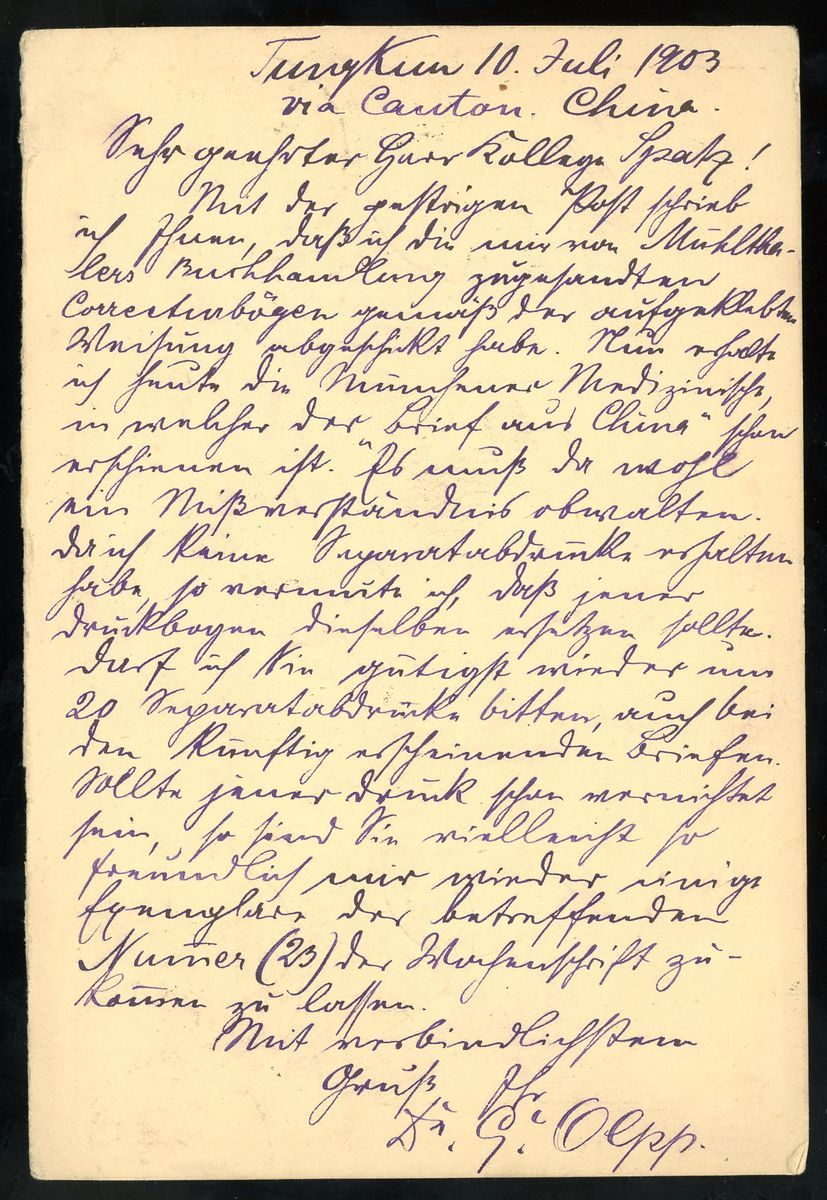 TungKun 10. Juli 1903
via Canton. China.
Sehr geehrter Herr Kollege Spatz!
Mit der gestrigen Post schrieb
ich Ihnen, daß ich die mir von Mühltha-
lers Buchhandlung zugesandten
Correcturbögen gemäß der aufgeklebten
Weisung abgeschickt habe. Nun erhalte
ich heute die Münchener Medizinische,
in welcher der „Brief aus China" schon
erschienen ist. Es muß da wohl
ein Mißverständnis obwalten.
Da ich keine Separatabdrücke erhalten
habe, so vermute ich, daß jener
Druckbogen dieselben ersetzen sollte.
Darf ich Sie gütigst wieder um
20 Separatabdrücke bitten, auch bei
den künftig erscheinenden Briefen.
Sollte jener Druck schon vernichtet
sein, so sind Sie vielleicht so
freundlich mir wieder einige
Exemplare der betreffenden
Num̄er (23) der Wochenschrift zu-
kom̄en zu lassen.
Mit verbindlichstem
Gruß Ihr
Dr. G. Olpp.